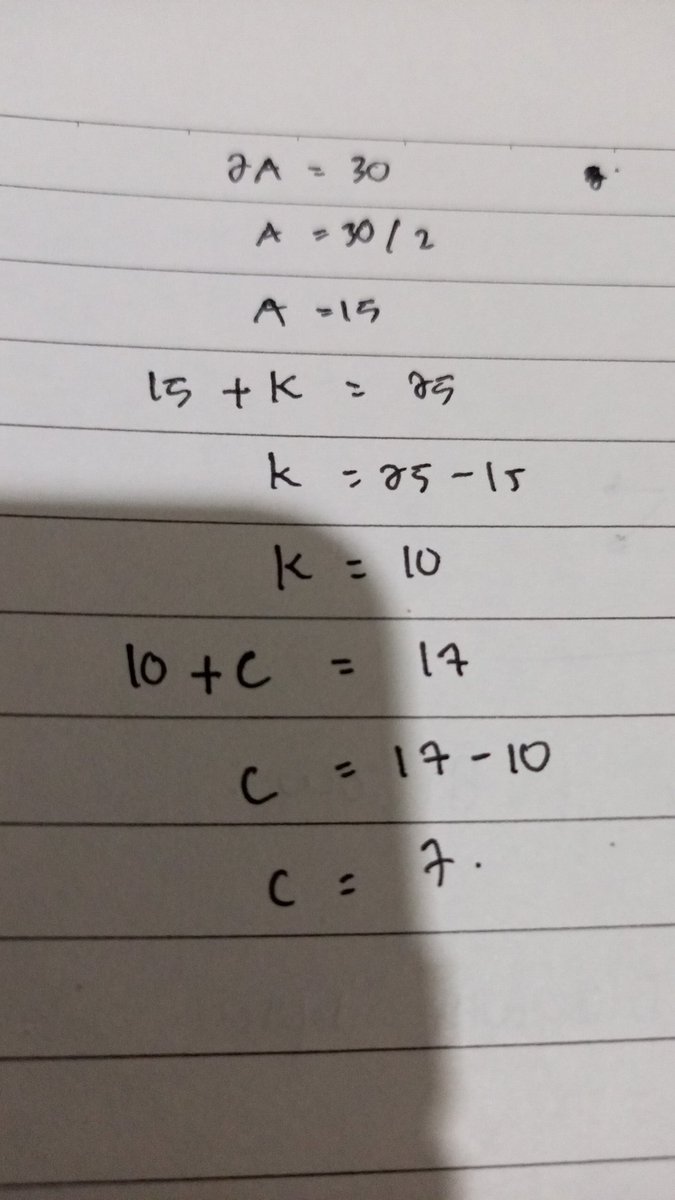 2A = 30
A = 30/2
A = 15
15 + K = 25
K = 25 - 15
K = 10
10 + C = 17
C = 17 - 10
C = 7.